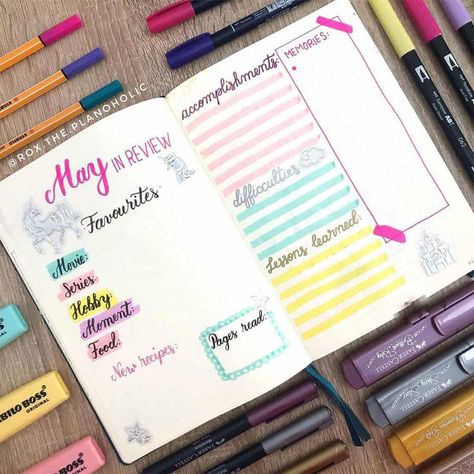 @ROX.THE.PLANOHOLIC
May IN REVIEW
Favourites
Movie:
Series:
Hobby:
Moment:
Food:
New recipes:
Pages read:
accomplishments:
difficulties
Lessons learned:
MEMORIES:
STABILO BOSS
ORIGINAL
BOSS
ORIGINAL
FABER-CASTELL
FABER-CASTELL